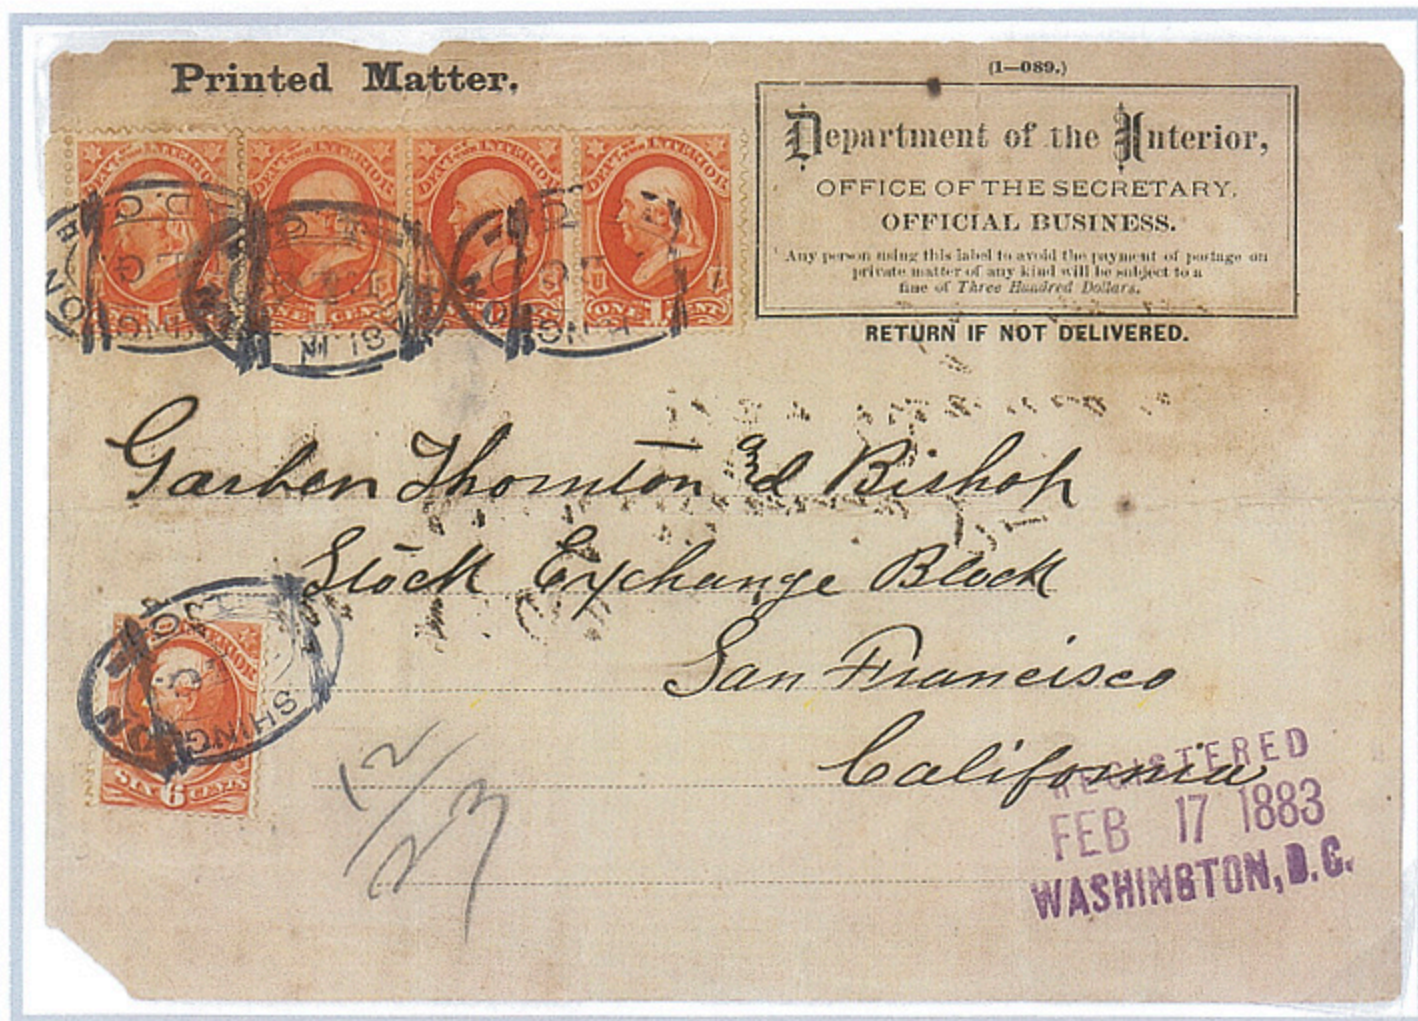 Printed Matter.
(1—089.)
Department of the Interior,
OFFICE OF THE SECRETARY.
OFFICIAL BUSINESS.
Any person using this label to avoid the payment of postage on
private matter of any kind will be subject to a
fine of Three Hundred Dollars.
RETURN IF NOT DELIVERED.
DEPT. OF THE INTERIOR DEPT. OF THE INTERIOR DEPT. OF THE INTERIOR DEPT. OF THE INTERIOR
ONE 1 CENT ONE 1 CENT
Garber Thornton & Bishop
Stock Exchange Block
San Francisco
California
SIX 6 CENTS
12/23
REGISTERED
FEB 17 1883
WASHINGTON, D.C.